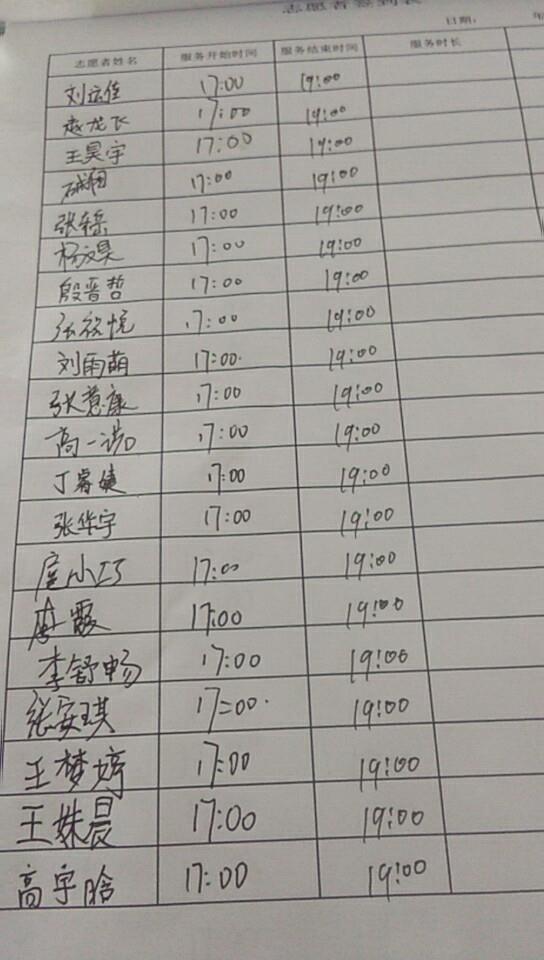 志愿者签到表
日期： 年
志愿者姓名 服务开始时间 服务结束时间 服务时长
刘运佳 17:00 19:00
赵龙飞 17:00 19:00
王昊宇 17:00 19:00
17:00 19:00
张 17:00 19:00
杨文昊 17:00 19:00
殷晋哲 17:00 19:00
张 悦 17:00 19:00
刘雨萌 17:00 19:00
张慧康 17:00 19:00
高一 17:00 19:00
丁睿婕 17:00 19:00
张华宇 17:00 19:00
小巧 17:00 19:00
唐霞 17:00 19:00
李舒畅 17:00 19:00
张安琪 17:00 19:00
王梦婷 17:00 19:00
王姝晨 17:00 19:00
高宇晗 17:00 19:00